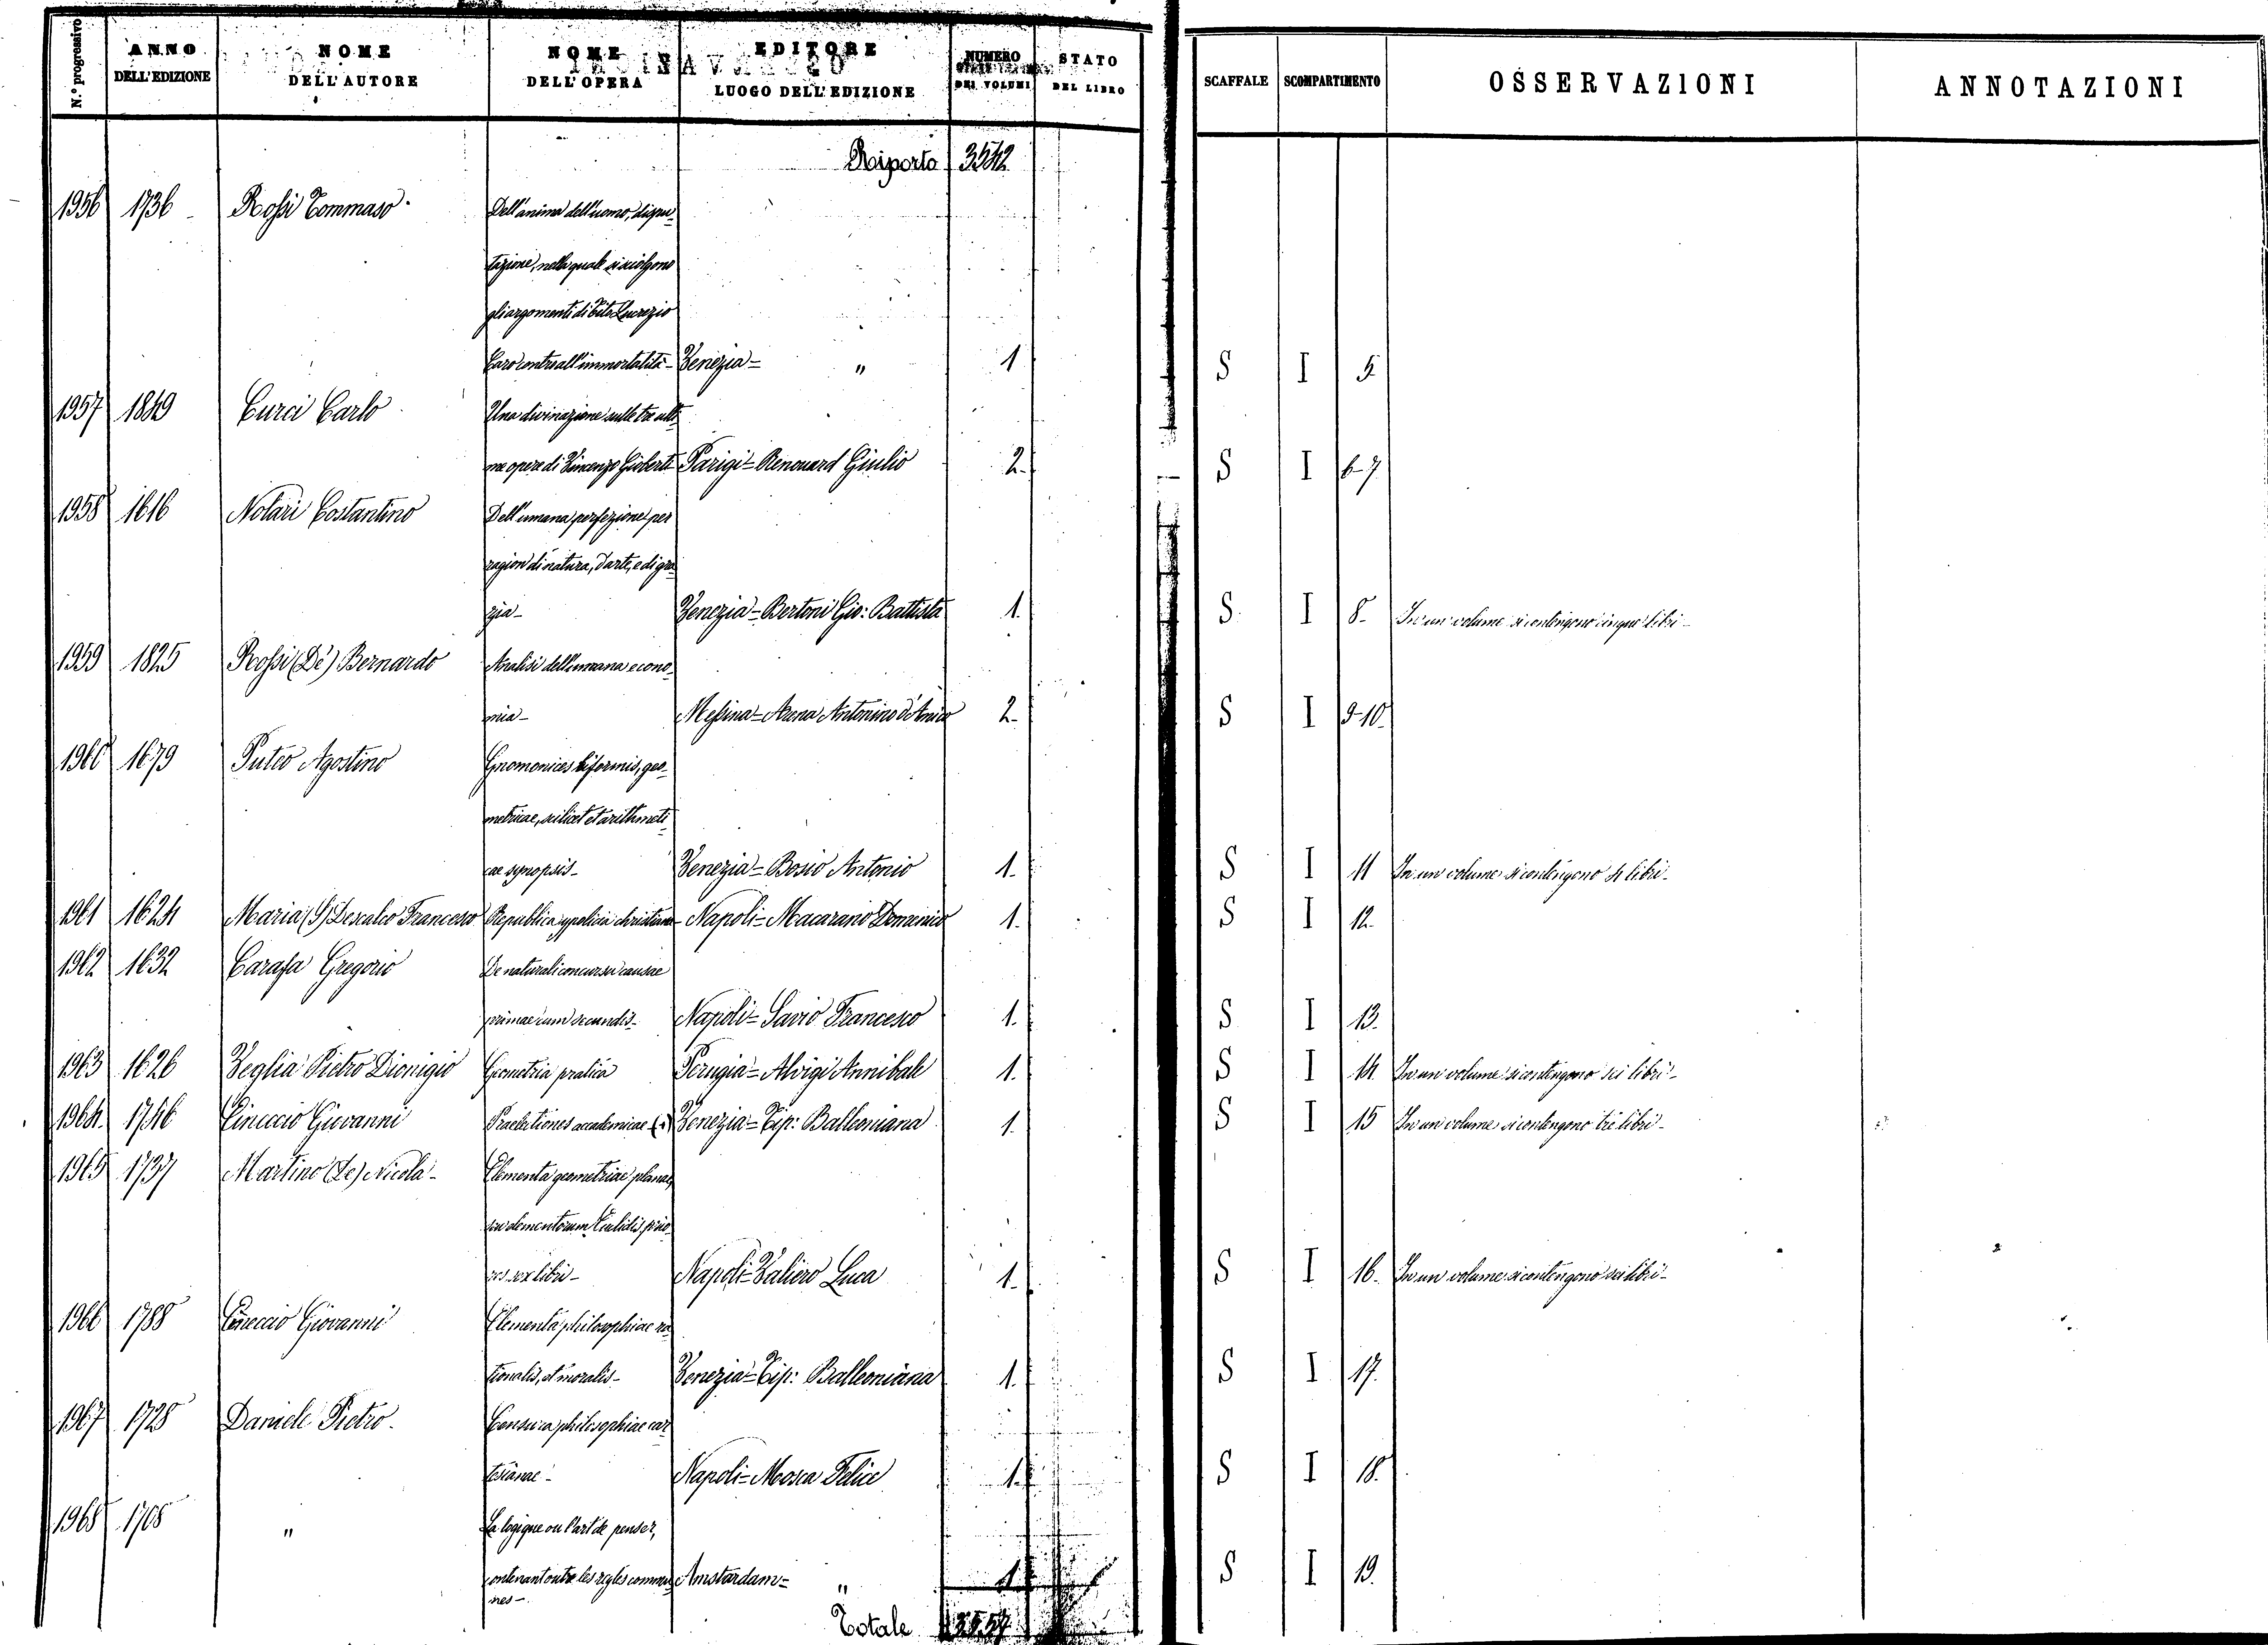 N.° progressivo | ANNO DELL'EDIZIONE | NOME DELL'AUTORE | NOME DELL'OPERA | EDITORE LUOGO DELL'EDIZIONE | NUMERO DEI VOLUMI | STATO DEL LIBRO | SCAFFALE | SCOMPARTIMENTO | OSSERVAZIONI | ANNOTAZIONI
Riporto 3542
1956 1736 Rossi Tommaso Dell'anima dell'uomo, dispu-
tazione, nella quale si sciolgono
gli argomenti di Tito Lucrezio
Caro contro all'immortalità - Venezia - " 1 S I 5
1957 1849 Curci Carlo Una divinazione sulle tre ulti-
me opere di Vincenzo Gioberti Parigi - Renouard Giulio 2 S I 6-7
1958 1616 Notari Costantino Dell'umana perfezione per
ragion di natura, d'arte, e di gra-
zia - Venezia - Bertoni Gio: Battista 1. S I 8. In un volume si contengono cinque libri -
1959 1825 Rossi (De) Bernardo Analisi dell'umana econo-
mia - Messina - Arena Antonino d'Amico 2 S I 9-10.
1960 1679 Puteo Agostino Gnomonices biformis, geo-
metricae, scilicet et arithmeti-
cae synopsis - Venezia - Bosio Antonio 1. S I 11 In un volume si contengono libri -
1961 1624 Maria (S) Descalco Francesco Republica y policia christiana - Napoli - Macarano Domenico 1. S I 12.
1962 1632 Carafa Gregorio De naturali concursu causae
primae cum secundis - Napoli - Savio Francesco 1. S I 13.
1963 1626 Veglia Pietro Dionigio Giometria pratica Perugia - Alvigi Annibale 1. S I 14. In un volume si contengono sei libri -
1964. 1746 Eineccio Giovanni Praelectiones academicae Venezia - Tip: Balleoniana 1. S I 15 In un volume si contengono tre libri -
1965 1737 Martino (De) Nicola - Elementa geometriae planae,
sive elementorum Euclidis prio-
res sex libri - Napoli - Valiero Luca 1. S I 16. In un volume si contengono sei libri -
1966 1788 Eineccio Giovanni Elementa philosophiae ra-
tionalis, et moralis - Venezia - Tip: Balleoniana 1. S I 17.
1967 1728 Daniele Pietro. Censura philosophiae car-
tesianae - Napoli - Mosca Felice 1. S I 18.
1968 1708 " La logique ou l'art de penser,
contenant outre les regles commu-
nes - Amstardam - " 1 S I 19.
Totale 3557